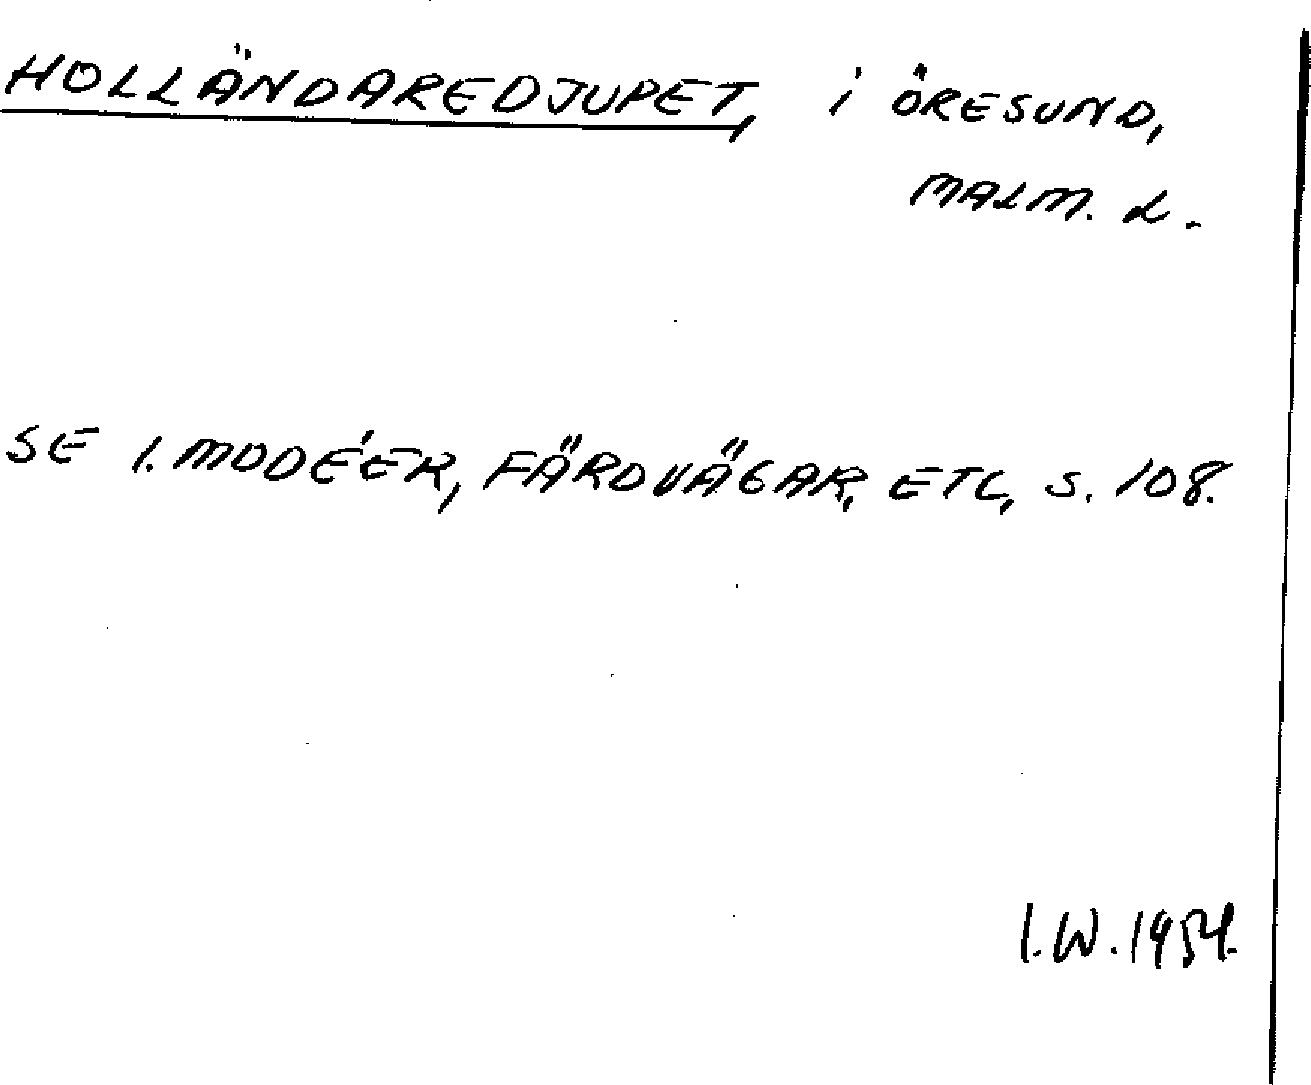 HOLLÄNDAREDJUPET, i ÖRESUND,
MALM. L.
SE I. MODÉER, FÄRDVÄGAR, ETC, S. 108.
I.W. 1954.